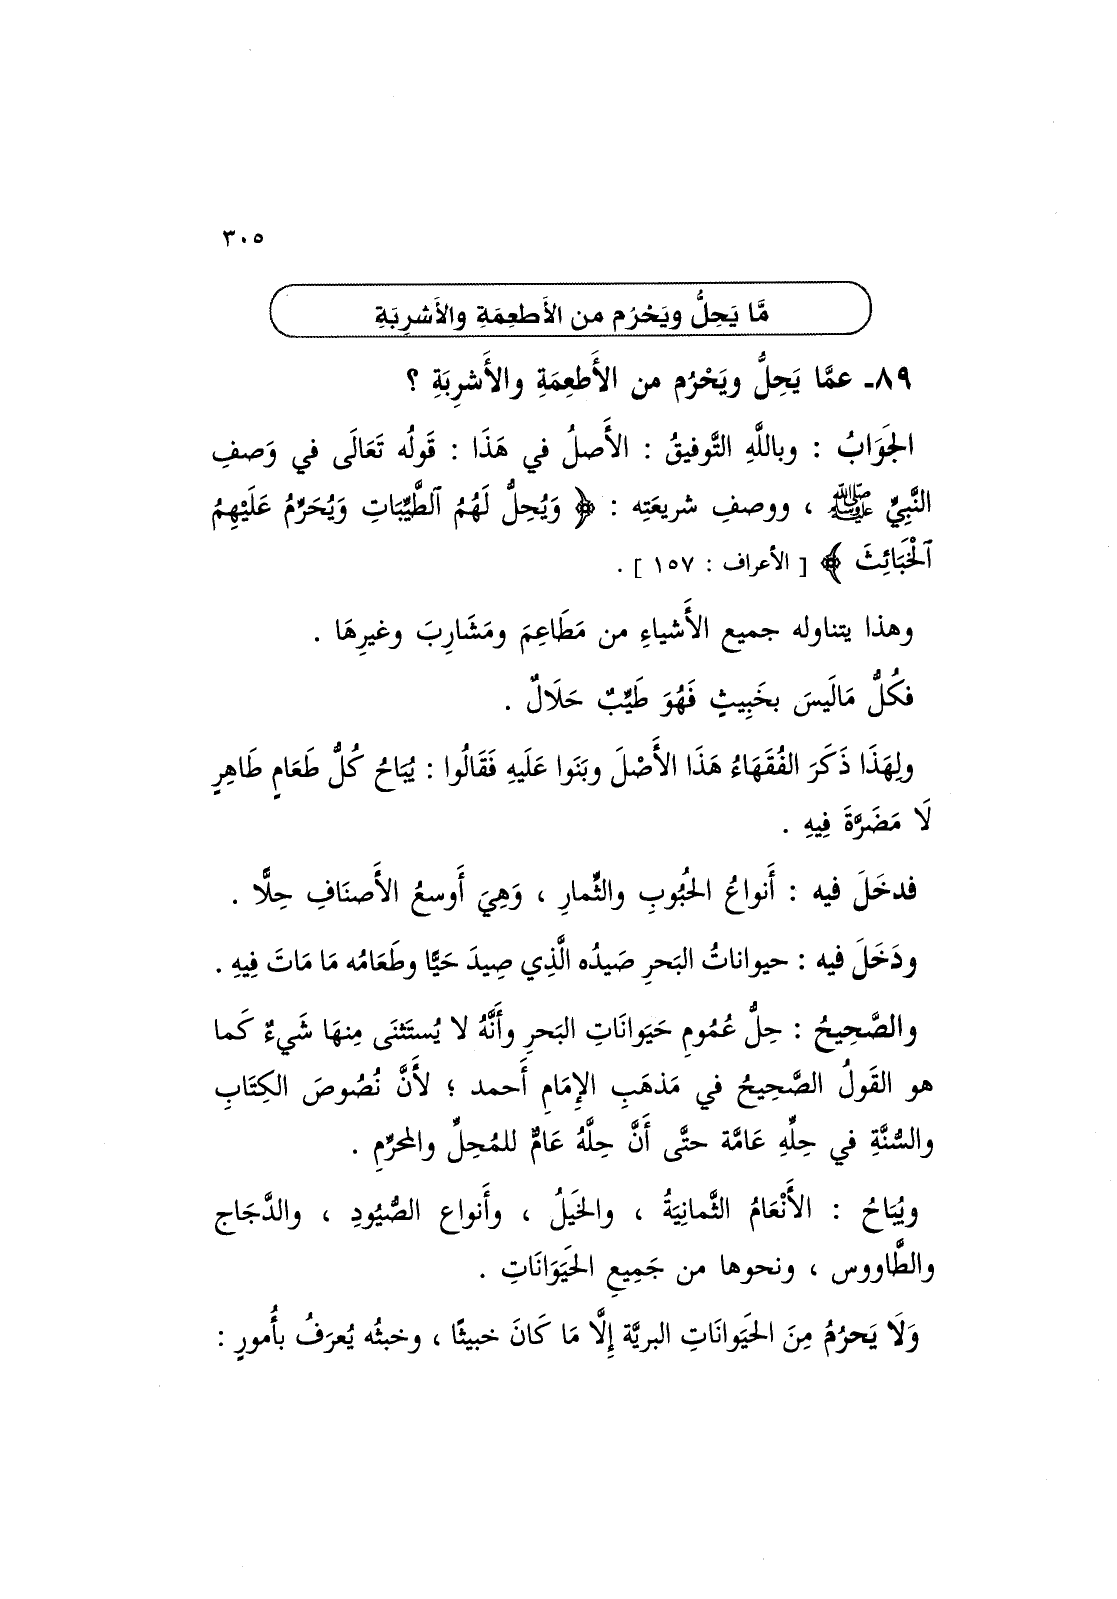 ٣٠٥
مَّا يَحِلُّ ويَحْرُم من الأَطعِمَةِ والأَشرِبَةِ
٨٩ـ عمَّا يَحِلُّ ويَحْرُم من الأَطعِمَةِ والأَشرِبَةِ ؟
الجَوَابُ : وباللَّهِ التَّوفيقُ : الأَصلُ في هَذَا : قَولُه تَعَالَى في وَصفِ
النَّبِيِّ ﷺ ، ووصفِ شريعَتِه : ﴿ وَيُحِلُّ لَهُمُ ٱلطَّيِّبَاتِ وَيُحَرِّمُ عَلَيْهِمُ
ٱلْخَبَائِثَ ﴾ [ الأعراف : ١٥٧ ] .
وهذا يتناوله جميع الأَشياءِ من مَطَاعِمَ ومَشَارِبَ وغيرِهَا .
فكُلُّ مَالَيسَ بخَبِيثٍ فَهُوَ طَيِّبٌ حَلَالٌ .
ولِهَذَا ذَكَرَ الفُقَهَاءُ هَذَا الأَصْلَ وبَنَوا عَلَيهِ فَقَالُوا : يُبَاحُ كُلُّ طَعَامٍ طَاهِرٍ
لَا مَضَرَّةَ فِيهِ .
فدخَلَ فيه : أَنواعُ الحُبُوبِ والثِّمارِ ، وَهِيَ أَوسعُ الأَصنَافِ حِلًّا .
ودَخَلَ فيه : حيواناتُ البَحرِ صَيدُه الَّذِي صِيدَ حَيًّا وطَعَامُه مَا مَاتَ فِيهِ .
والصَّحِيحُ : حِلُّ عُمُومِ حَيَوَانَاتِ البَحرِ وأَنَّهُ لا يُستَثنَى مِنهَا شَيءٌ كَما
هو القَولُ الصَّحِيحُ في مَذهَبِ الإِمَامِ أَحمد ؛ لأَنَّ نُصُوصَ الكِتَابِ
والسُّنَّةِ في حِلِّهِ عَامَّة حتَّى أَنَّ حِلَّهُ عَامٌّ للمُحِلِّ والمحرِّمِ .
ويُبَاحُ : الأَنْعَامُ الثَّمانِيَةُ ، والخَيلُ ، وأَنواع الصُّيُودِ ، والدَّجَاج
والطَّاووس ، ونحوها من جَمِيعِ الحَيَوَانَاتِ .
وَلَا يَحرُمُ مِنَ الحَيَوانَاتِ البريَّة إِلَّا مَا كَانَ خبيثًا ، وخبثُه يُعرَفُ بأُمورٍ :